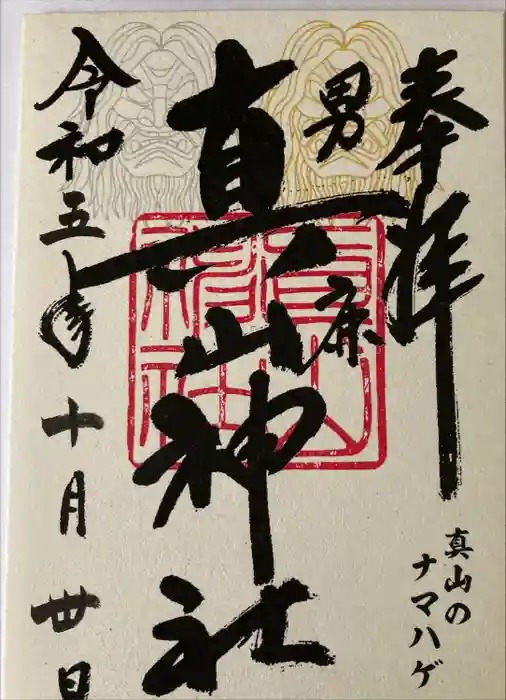 奉拝
真山の
ナマハゲ
男鹿
真山神社
令和五年十月卅日